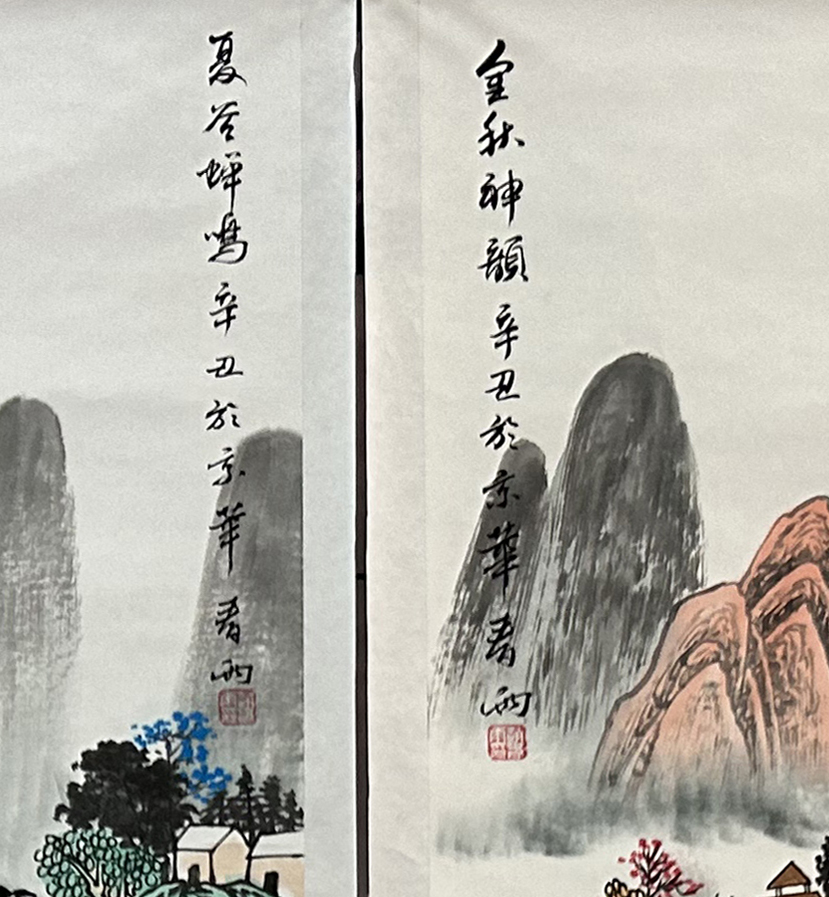 夏谷蝉鳴辛丑於京華春雨
金秋神韻辛丑於京華春雨